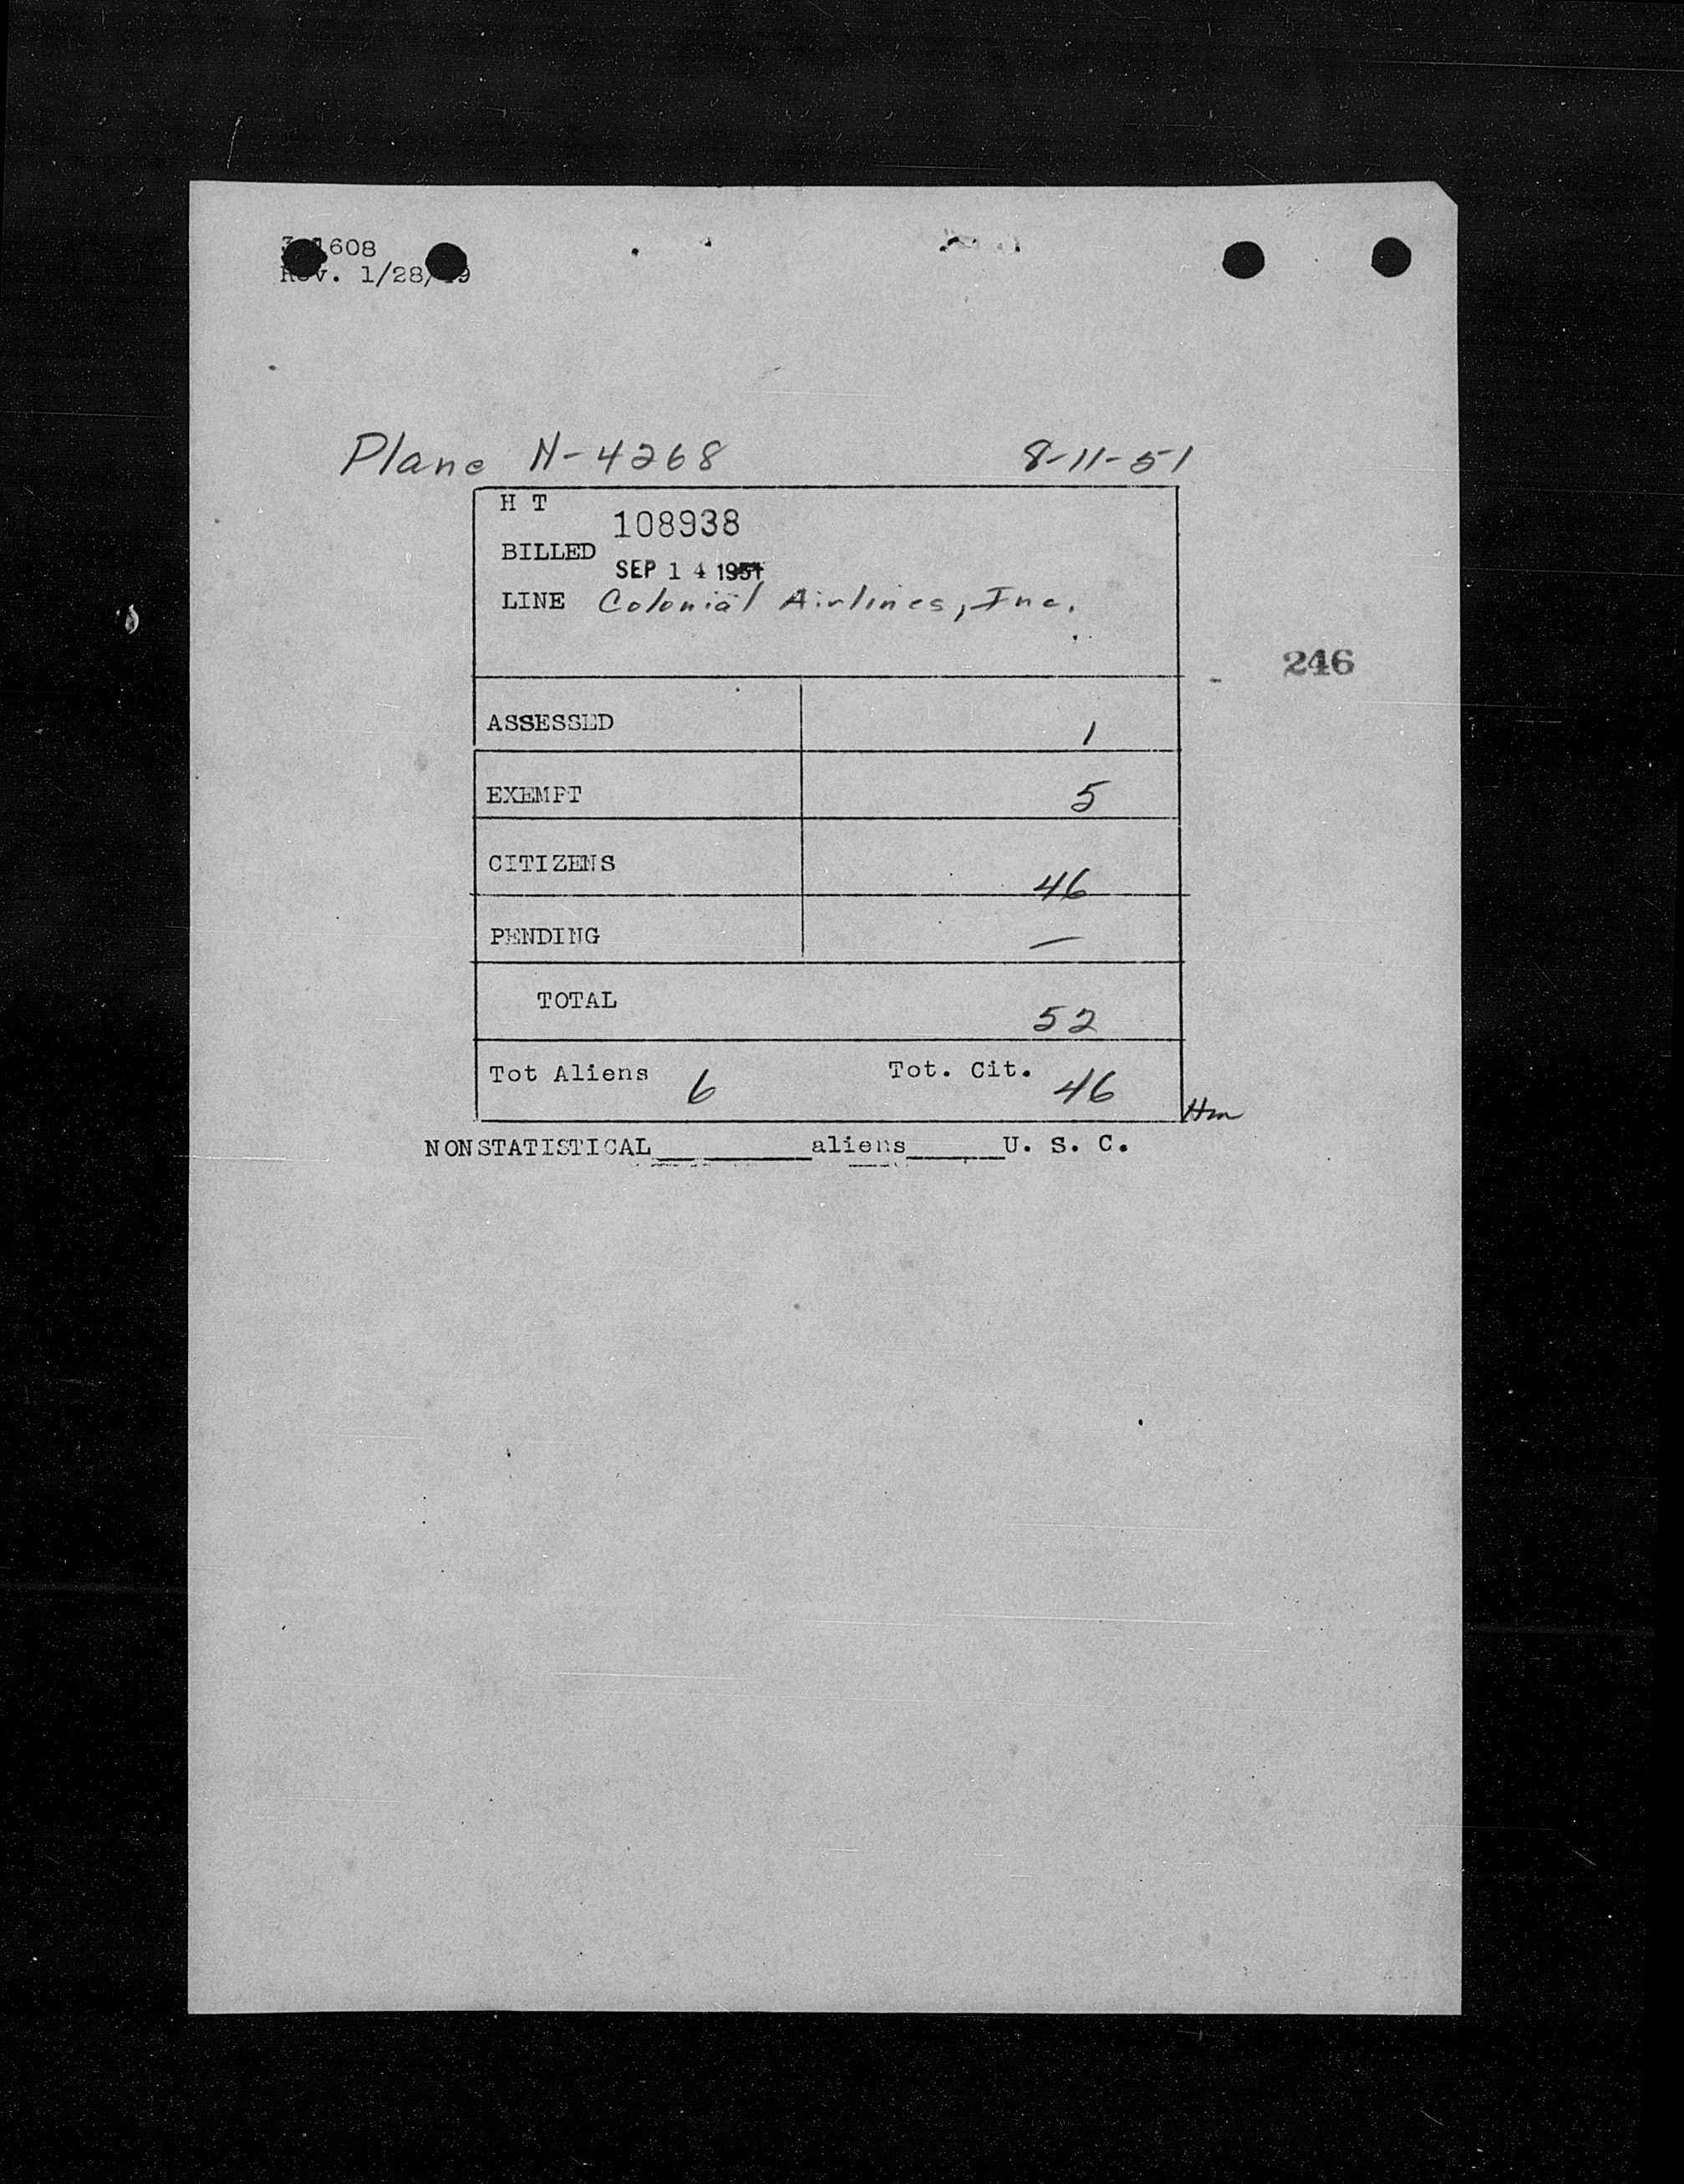 1608
Rev. 1/28/49
Plane N-4268 8-11-51
H T
108938
BILLED
SEP 14 1951
LINE Colonial Airlines, Inc.
246
ASSESSED 1
EXEMPT 5
CITIZENS 46
PENDING —
TOTAL 52
Tot Aliens 6 Tot. Cit. 46
Hm
NONSTATISTICAL__________aliens______U. S. C.